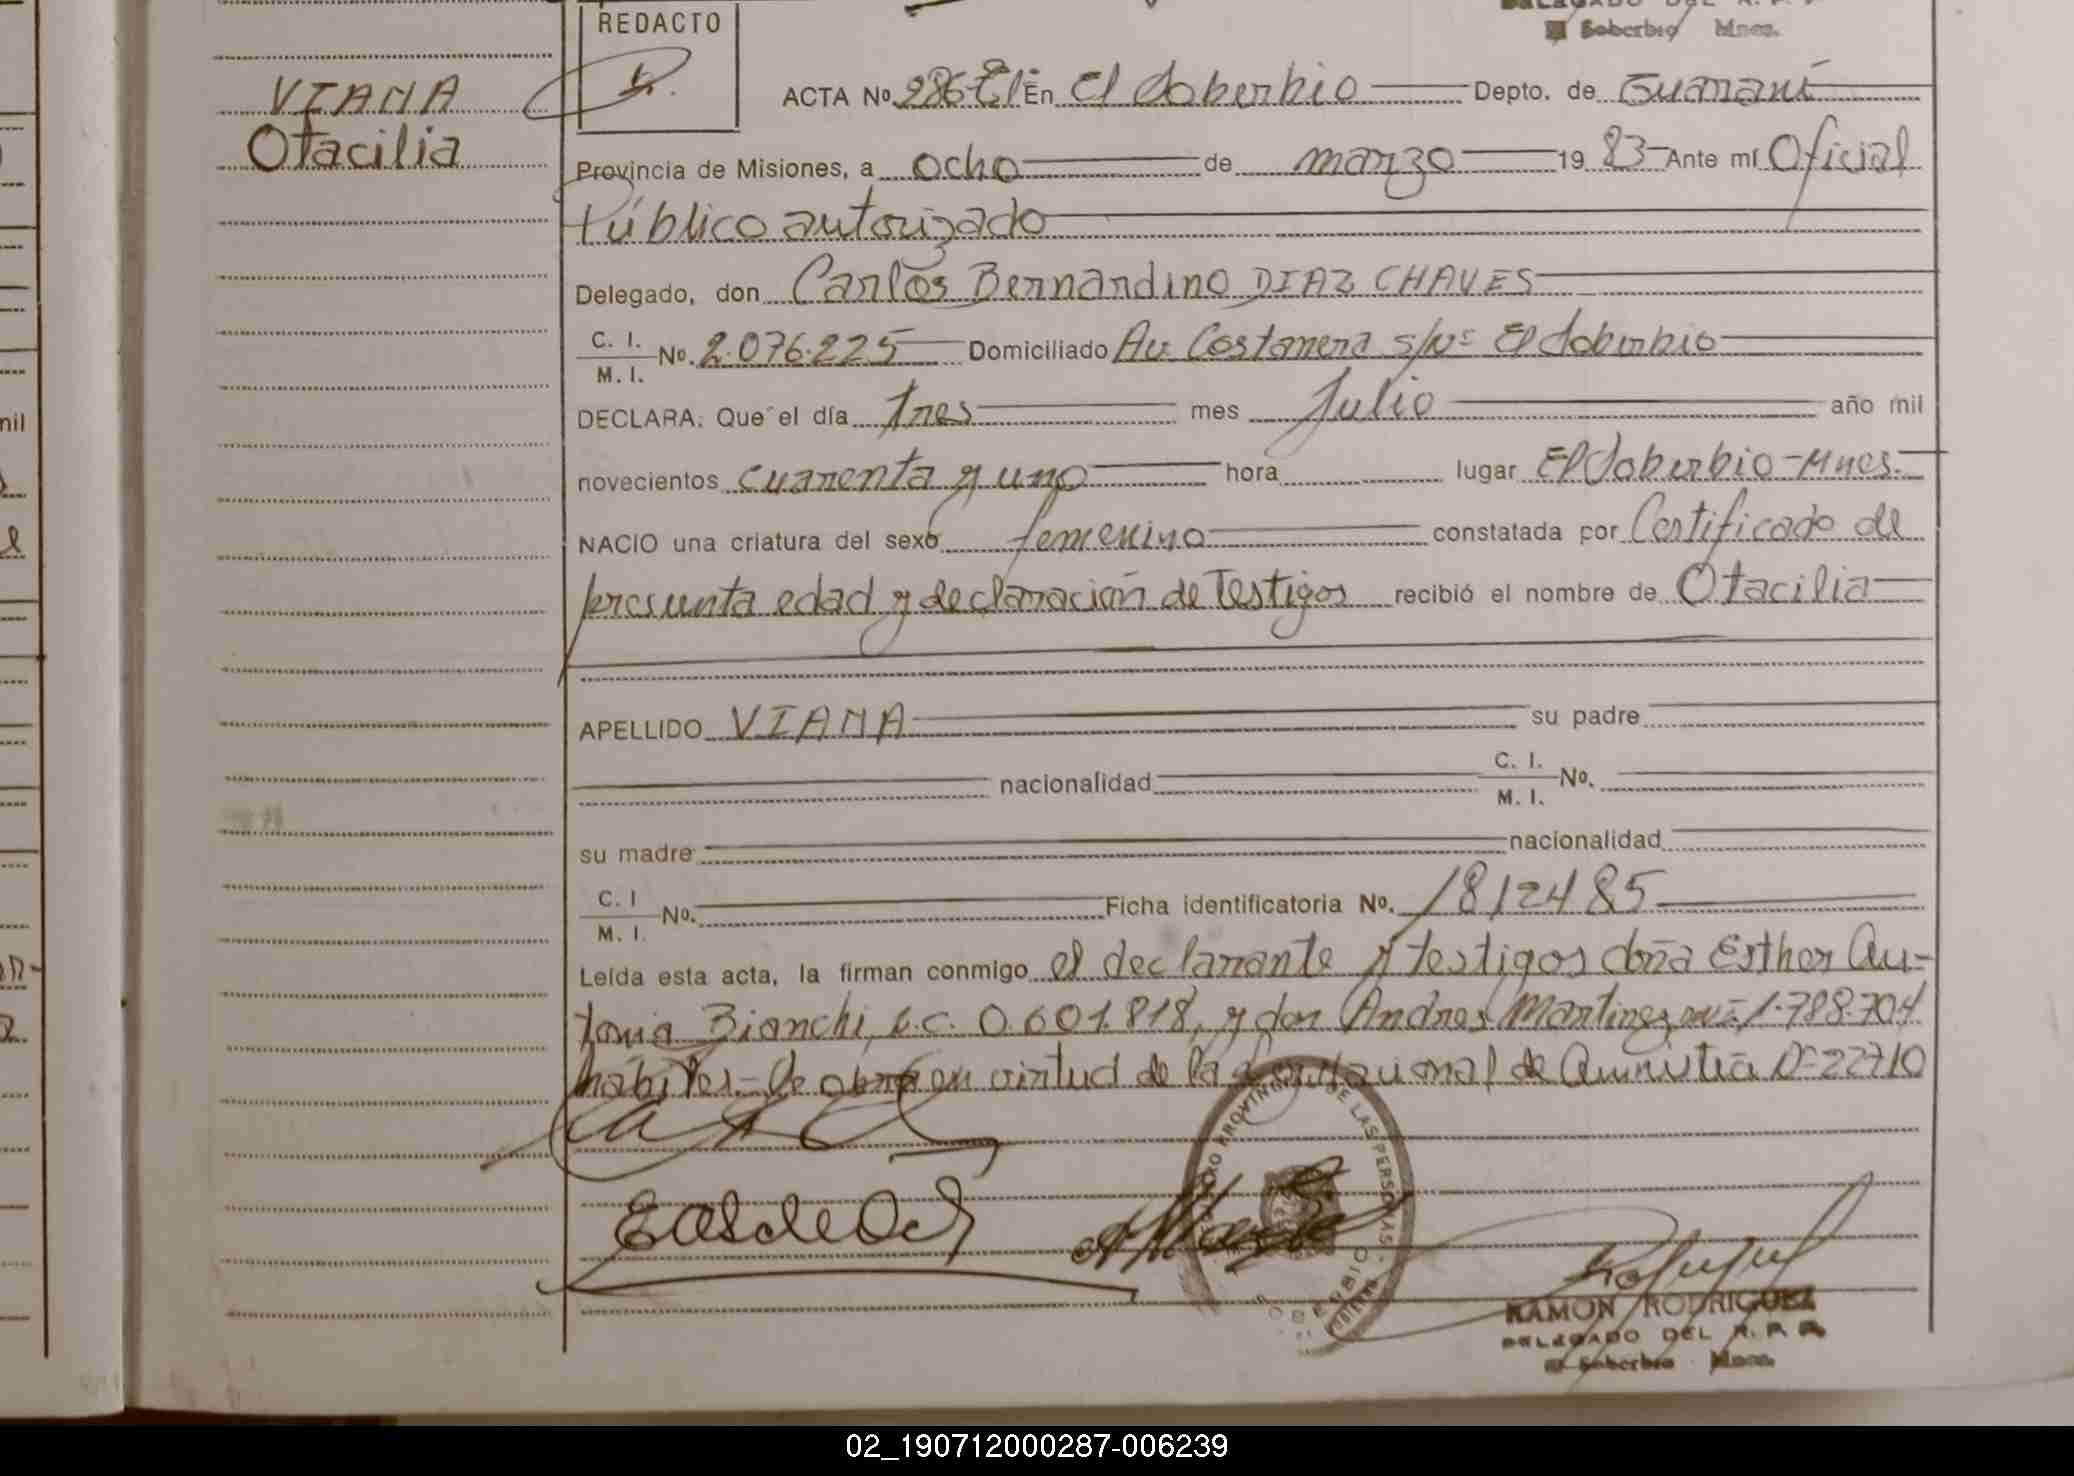 REDACTO
DELEGADO DEL R. P. P.
El Soberbio Mnes.
VIANA
Otacilia
ACTA Nº 286 En El Soberbio Depto. de Guaraní
Provincia de Misiones, a ocho de marzo 19 83 Ante mí Oficial
Público autorizado
Delegado, don Carlos Bernardino DIAZ CHAVES
C. I.
M. I. Nº. 2.076.225 Domiciliado Av Costanera s/nº El Soberbio
DECLARA: Que el día tres mes Julio año mil
novecientos cuarenta y uno hora lugar El Soberbio-Mnes.
NACIO una criatura del sexo femenino constatada por Certificado de
presunta edad y declaración de Testigos recibió el nombre de Otacilia
APELLIDO VIANA su padre
nacionalidad C. I.
M. I. Nº.
su madre nacionalidad
C. I
M. I. Nº. Ficha identificatoria Nº. 1812485
Leída esta acta, la firman conmigo el declarante y testigos doña Esther An-
tonia Bianchi, L.C. 0.601.818, y don Andres Martinez 1.788.704
habiles.- Se abre en virtud de la Ley Nacional de Amnistia Nº 22710
REGISTRO PROVINCIAL DE LAS PERSONAS
SOBERBIO
MISIONES
RAMON RODRIGUEZ
DELEGADO DEL R. P. P.
El Soberbio Mnes.
02_190712000287-006239